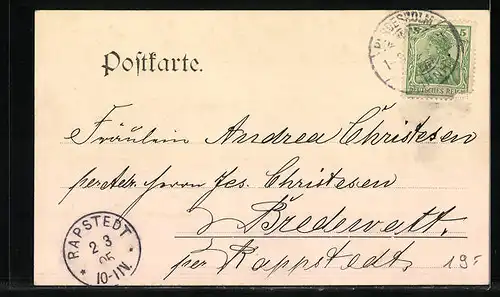 BORDESHOLM
5
DEUTSCHES REICH
Postkarte.
Fräulein Andrea Christesen
per Adr. Herrn Jes. Christesen
Bredewatt.
per Rappstedt
RAPSTEDT
2 3
05
10-11V.
19